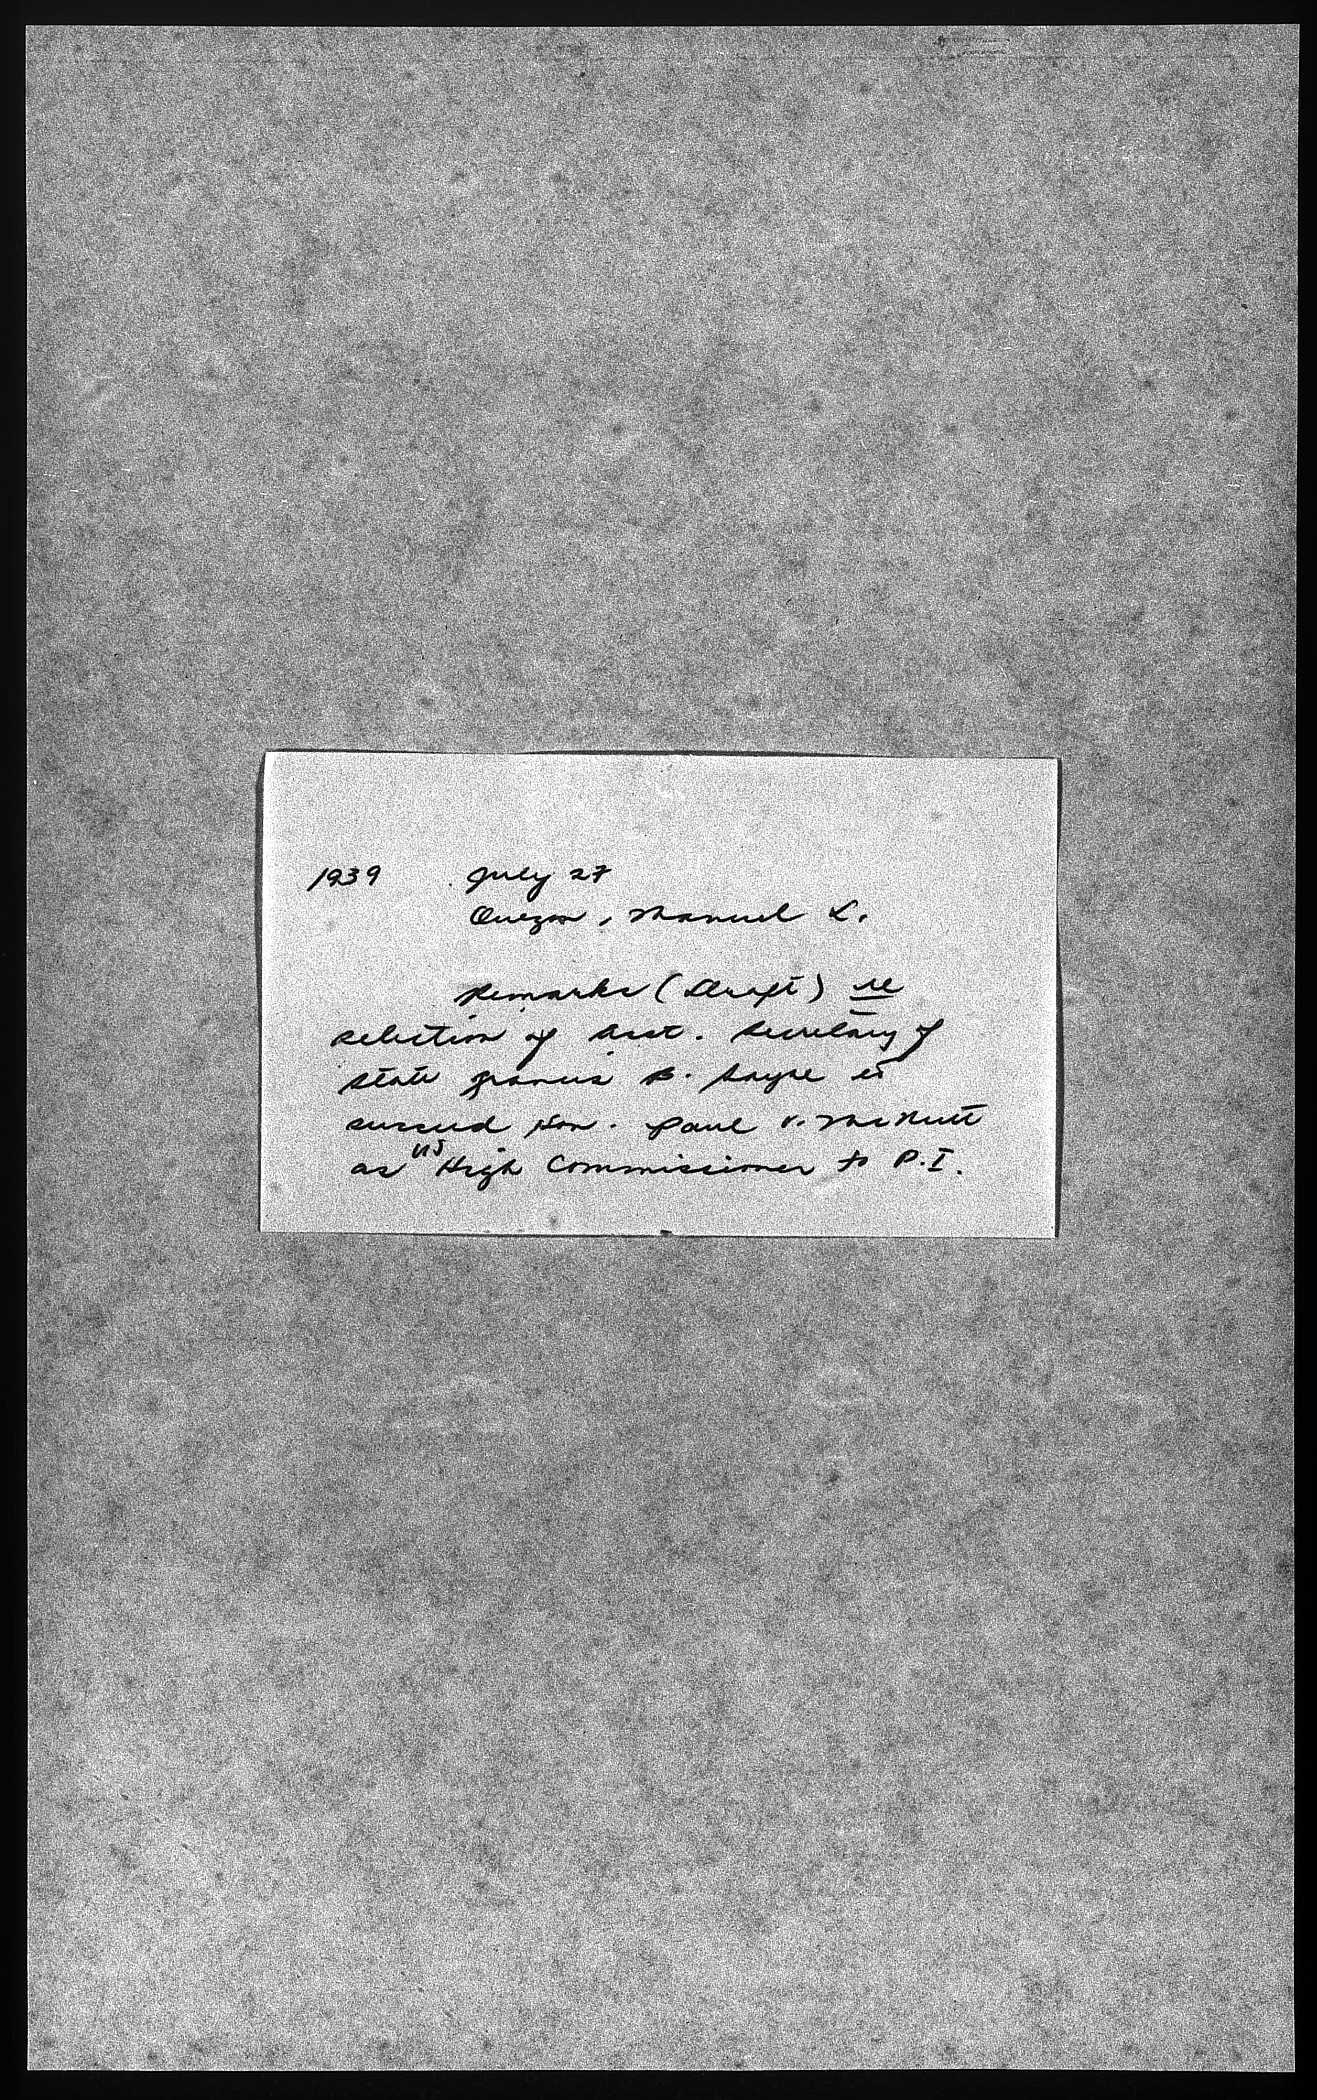 1939 July 27
Quezon, Manuel L.
Remarks (Draft) re
selection of Asst. Secretary of
State Francis B. Sayre to
succeed Hon. Paul V. McNutt
as US High Commissioner to P.I.